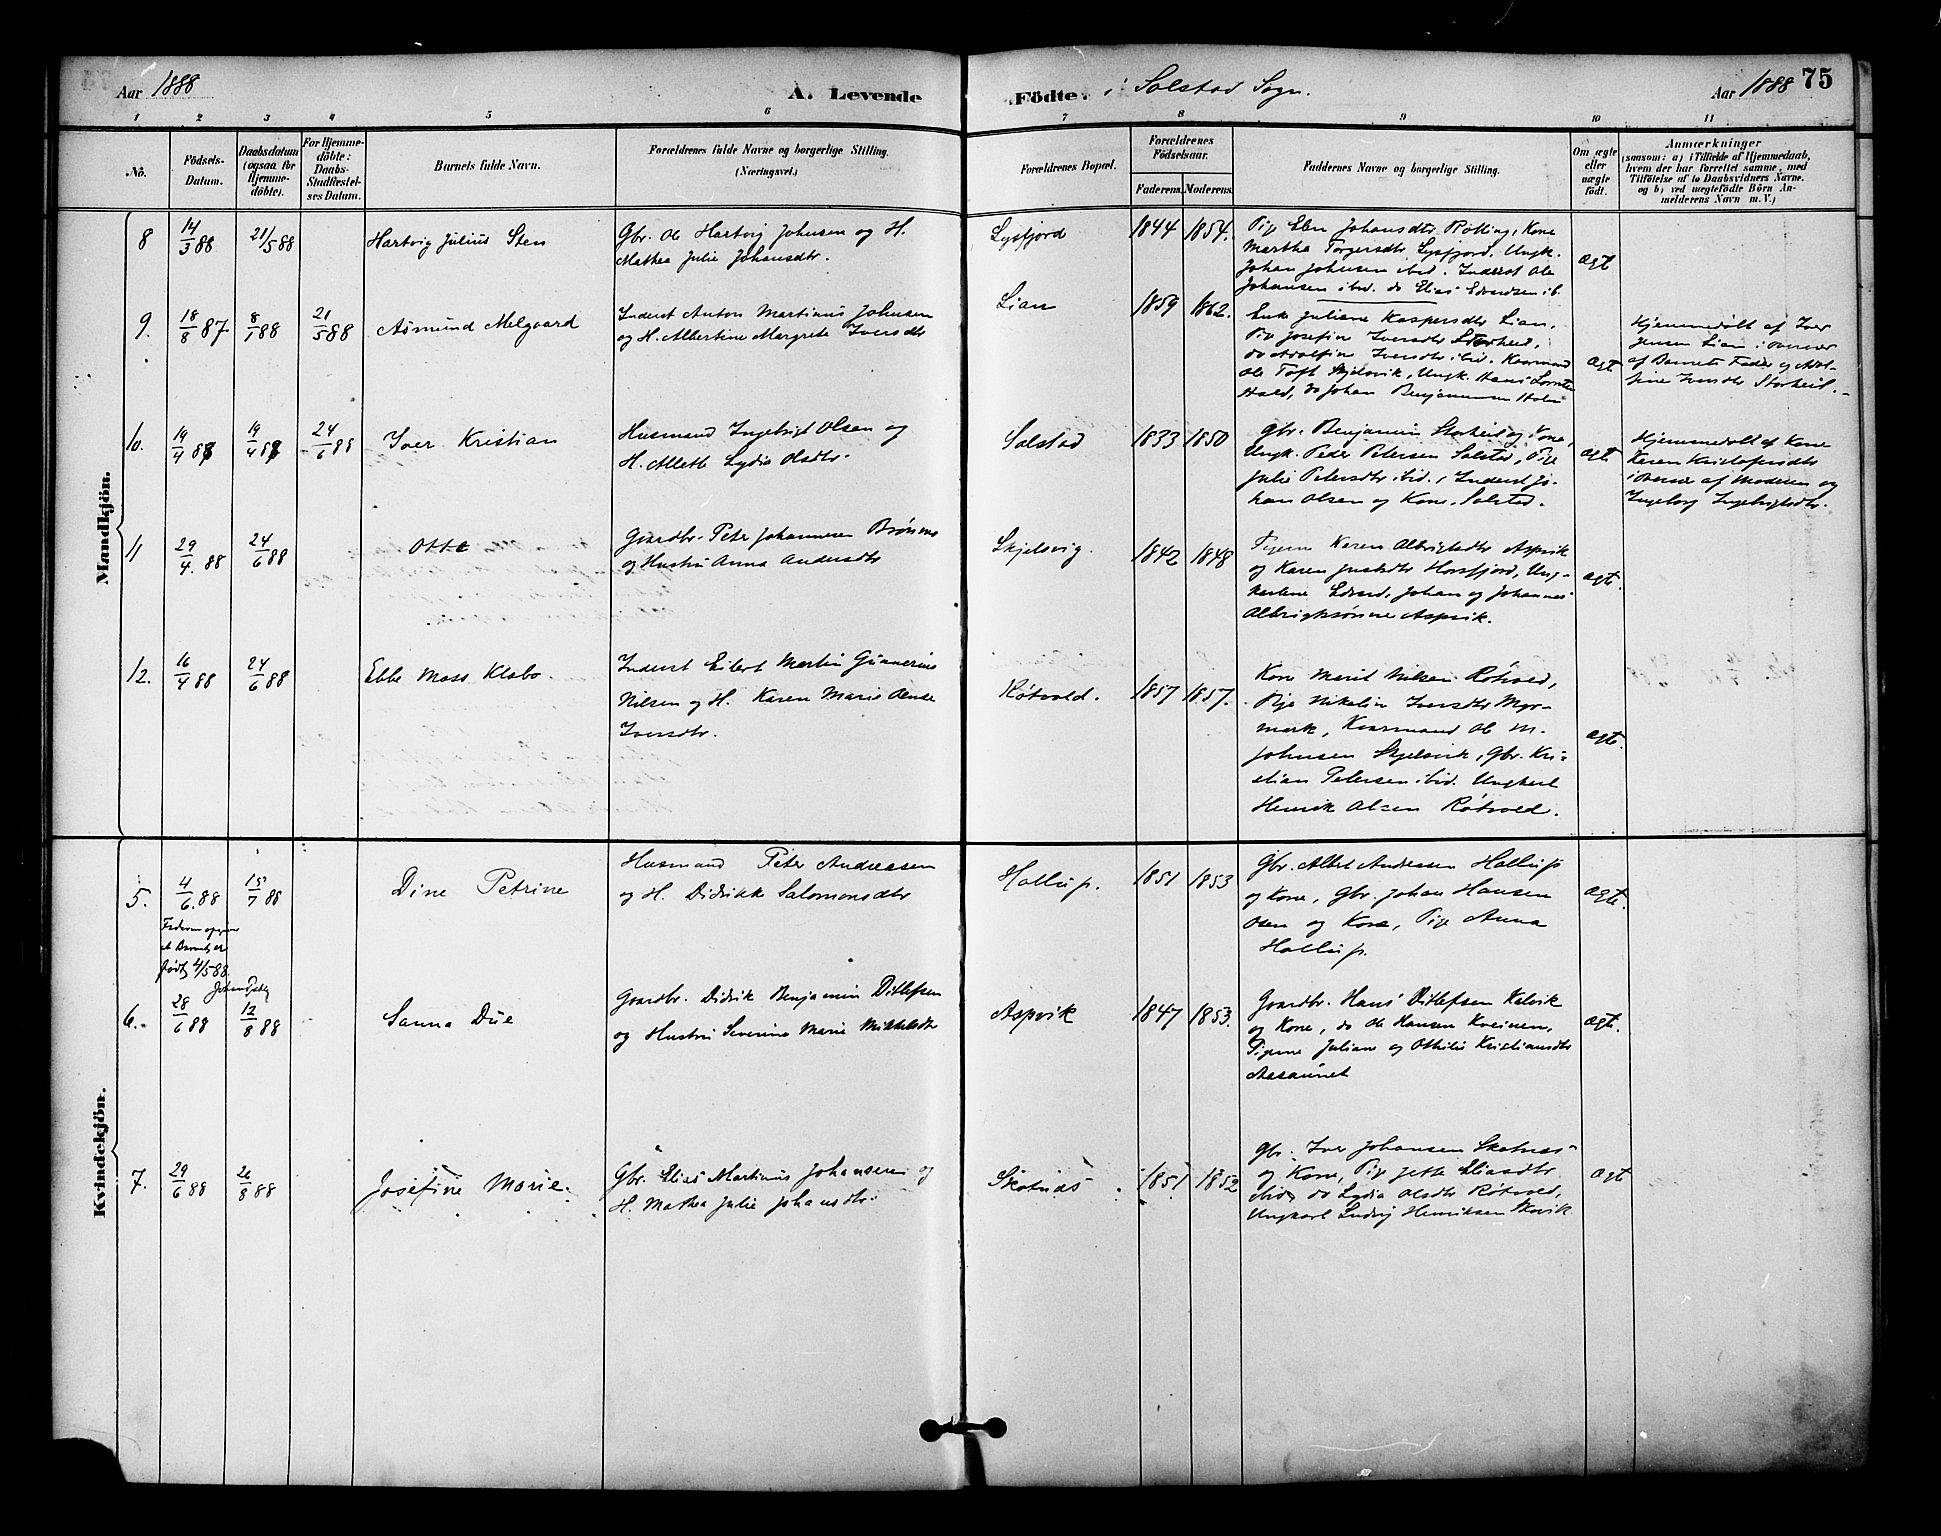 Aar 1888
A. Levende Födte. i Solstad Sogn.
Aar 1888 75
1 2 3 4 5 6 7 8 9 10 11
No.
Födsels-Datum.
Daabsdatum (ogsaa for Hjemmedöbte).
For Hjemmedöbte: Daabs-Stadfæstelses Datum.
Barnets fulde Navn.
Forældrenes fulde Navne og borgerlige Stilling. (Næringsvei.)
Forældrenes Bopæl.
Forældrenes Födselsaar. Faderens. Moderens.
Faddernes Navne og borgerlige Stilling.
Om ægte eller uægte födt.
Anmærkninger
(saasom: a) i Tilfælde af Hjemmedaab, hvem der har forrettet samme, med Tilföielse af to Daabsvidners Navne. og b) ved uægtefödte Börn Anmelderens Navn m. V.)
Mandkjön.
8 14/3 88 21/5 88 Hartvig Julius Sten
Gbr. Ole Hartvig Johnsen og H.
Mathea Julie Johansdtr.
Lysfjord 1844 1854.
Pige Elen Johansdtr. Rølling, Kone
Martha Torgersdtr Lysfjord, Ungk.
Johan Johnsen ibid. Inderst Ole
Johansen ibid. do Elias Edvardsen ib.
ægte
9. 18/8 87 8/1 88 21/5 88 Asmund Melgaard
Inderst Anton Martinus Johnsen
og H. Albertine Margrete Iversdtr
Lian 1859 1862.
Enke Juliane Kaspersdtr Lian,
Pige Josefine Iversdtr Storheil,
do Adolfine Iversdtr ibid. Kaarmand
Ole Toft Skjelsvik, Ungk. Hans
Hald, do Johan Benjaminsen Holm
ægte
Hjemmedøbt af Iver
Jensen Lian i Overvær
af Barnets Fader og Adolfine Iversdtr Storheil.
10. 19/4 88 19/4 88 24/6 88 Iver Kristian
Husmand Ingebrigt Olsen og
H. Alleth Lydia Olsdtr.
Solstad 1833 1850
Gbr. Benjamin Storheil og Kone,
Ungk. Peder Petersen Solstad, Pige
Julie Petersdtr ibid., Inderst Johan Olsen og Kone, Solstad.
ægte
Hjemmedøbt af Kone
Karen Kristofersdtr
i Overvær af Moderen og
Ingeborg Ingebrigtsdtr.
11 29/4. 88 24/6 88 Otte
Gaardbr. Peter Johannesen Brønmo
og Hustru Anna Andersdtr
Skjelsvig. 1842 1848
Pigerne Karen Albrigtsdtr Aspvik
og Karen Justsdtr Horsfjord, Ungkarlene Edvard, Johan og Johannes
Albrigtsønner Aspvik.
ægte.
12. 16/4 88 24/6 88 Ebbe Moss Klabo.
Inderst Eilert Martin Gunerius
Nilsen og H. Karen Marie
Iversdtr.
Røtvold. 1857 1857.
Kone Marit Nilsen Røtvold,
Pige Nikolin Iversdtr Myrmark, Kaarmand Ole M.
Johnsen Skjelsvik, Gbr. Kristian Petersen ibid. Ungkarl
Henrik Olsen Røtvold.
ægte.
Kvindekjön.
5. 4/6. 88 15/7 88 Dine Petrine
Faderen opgiver
at Barnet er
født 4/5 88.
Husmand Peter Andreassen
og H. Didrikk Salomonsdtr
Hollup. 1851 1853
Gbr. Albert Andreasen Hollup
og Kone, Gbr. Johan Hansen
Osen og Kone, Pige Anna
Hollup.
ægte.
6. 28/6 88 12/8 88 Sanna Due
Gaardbr. Didrik Benjamin Ditlefsen
og Hustru Severine Marie Mikkelsdtr
Aspvik 1847 1853.
Gaardbr. Hans Ditlefsen Kalvik
og Kone, do Ole Hansen Kveinen,
Pigerne Juliane og Othilie Kristiansdtr
Aasaunet
ægte.
7. 29/6 88 26/8 88 Josefine Marie.
Gbr. Elias Martinus Johansen og
H. Mathea Julie Johansdtr.
Skotnæs 1851 1852
Gbr. Iver Johansen Skotnæs
og Kone, Pige Jette Eliasdtr
ibid, do Lydia Olsdtr Røtvold,
Ungkarl Ludvig Henriksen Skovik.
ægte